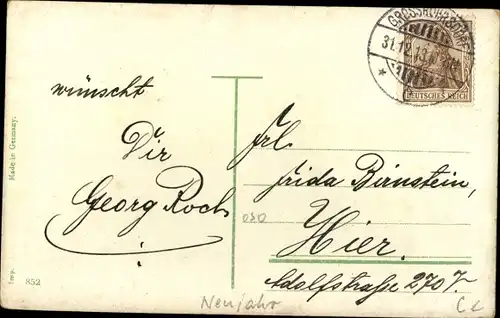 GROSSRÖHRSDORF
31.12.13
DEUTSCHES REICH
wünscht
Dir
Georg Roch
Frl.
Frida Birnstein,
Hier.
Adolfstraße 270 T.
Made in Germany.
Imp. 852
Neujahr